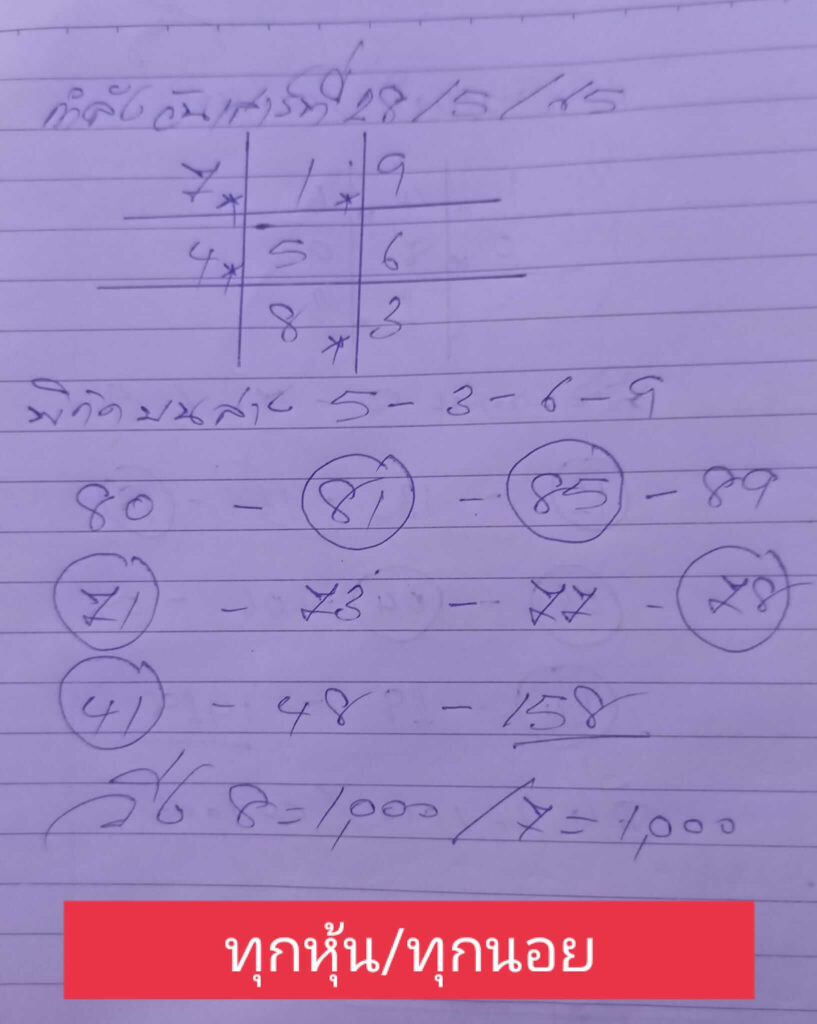 กำลังวันเสาร์ที่ 28/5/65
7* 1* 9
4* 5 6
8* 3
พิกัดบนล่าง 5 - 3 - 6 - 9
80 - 81 - 85 - 89
71 - 73 - 77 - 78
41 - 48 - 158
วิ่ง 8 = 1,000 / 7 = 1,000
ทุกหุ้น/ทุกนอย